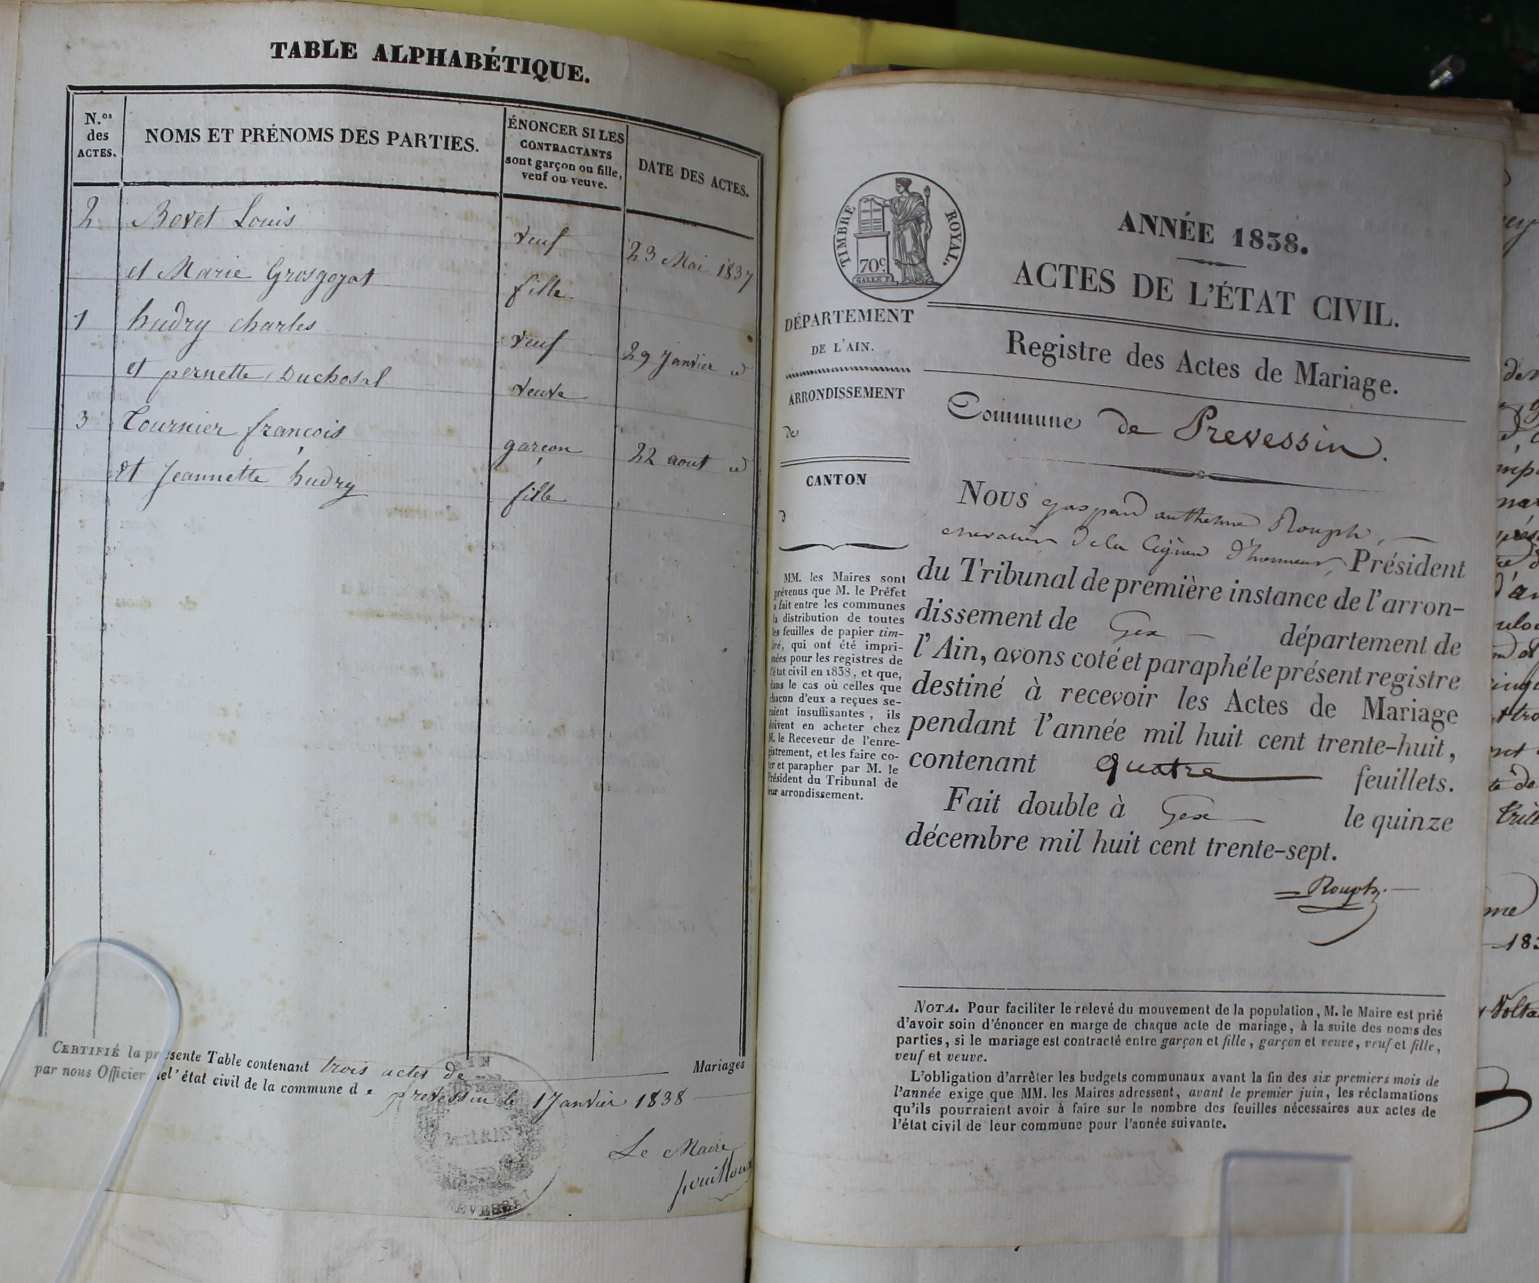 TABLE ALPHABÉTIQUE.
N.os des ACTES.
NOMS ET PRÉNOMS DES PARTIES.
ÉNONCER SI LES
CONTRACTANTS
sont garçon ou fille,
veuf ou veuve.
DATE DES ACTES.
2 Bovet Louis veuf 23 Mai 1837
et Marie Grosgojat fille
1 hudry charles veuf 29 Janvier id
et pernette Duchosal veuve
3 Tournier françois garçon 22 aout id
et Jeannette hudry fille
CERTIFIÉ la présente Table contenant trois actes de Mariages
par nous Officier de l'état civil de la commune de prevessin le 1 Janvier 1838
MAIRIE
Le Maire
TIMBRE ROYAL.
70c
ANNÉE 1838.
ACTES DE L'ÉTAT CIVIL.
Registre des Actes de Mariage.
Commune de Prevessin.
DÉPARTEMENT
DE L'AIN.
ARRONDISSEMENT
de
CANTON
d
MM. les Maires sont
prévenus que M. le Préfet
a fait entre les communes
la distribution de toutes
les feuilles de papier tim-
bré, qui ont été impri-
mées pour les registres de
l'état civil en 1838, et que,
dans le cas où celles que
chacun d'eux a reçues se-
raient insuffisantes, ils
doivent en acheter chez
M. le Receveur de l'enre-
gistrement, et les faire co-
ter et parapher par M. le
Président du Tribunal de
leur arrondissement.
Nous gaspard anthelme Rouph,
chevalier de la Légion d'honneur, Président
du Tribunal de première instance de l'arron-
dissement de Gex département de
l'Ain, avons coté et paraphé le présent registre
destiné à recevoir les Actes de Mariage
pendant l'année mil huit cent trente-huit,
contenant quatre feuillets.
Fait double à Gex le quinze
décembre mil huit cent trente-sept.
Rouph
NOTA. Pour faciliter le relevé du mouvement de la population, M. le Maire est prié
d'avoir soin d'énoncer en marge de chaque acte de mariage, à la suite des noms des
parties, si le mariage est contracté entre garçon et fille, garçon et veuve, veuf et fille,
veuf et veuve.
L'obligation d'arrêter les budgets communaux avant la fin des six premiers mois de
l'année exige que MM. les Maires adressent, avant le premier juin, les réclamations
qu'ils pourraient avoir à faire sur le nombre des feuilles nécessaires aux actes de
l'état civil de leur commune pour l'année suivante.